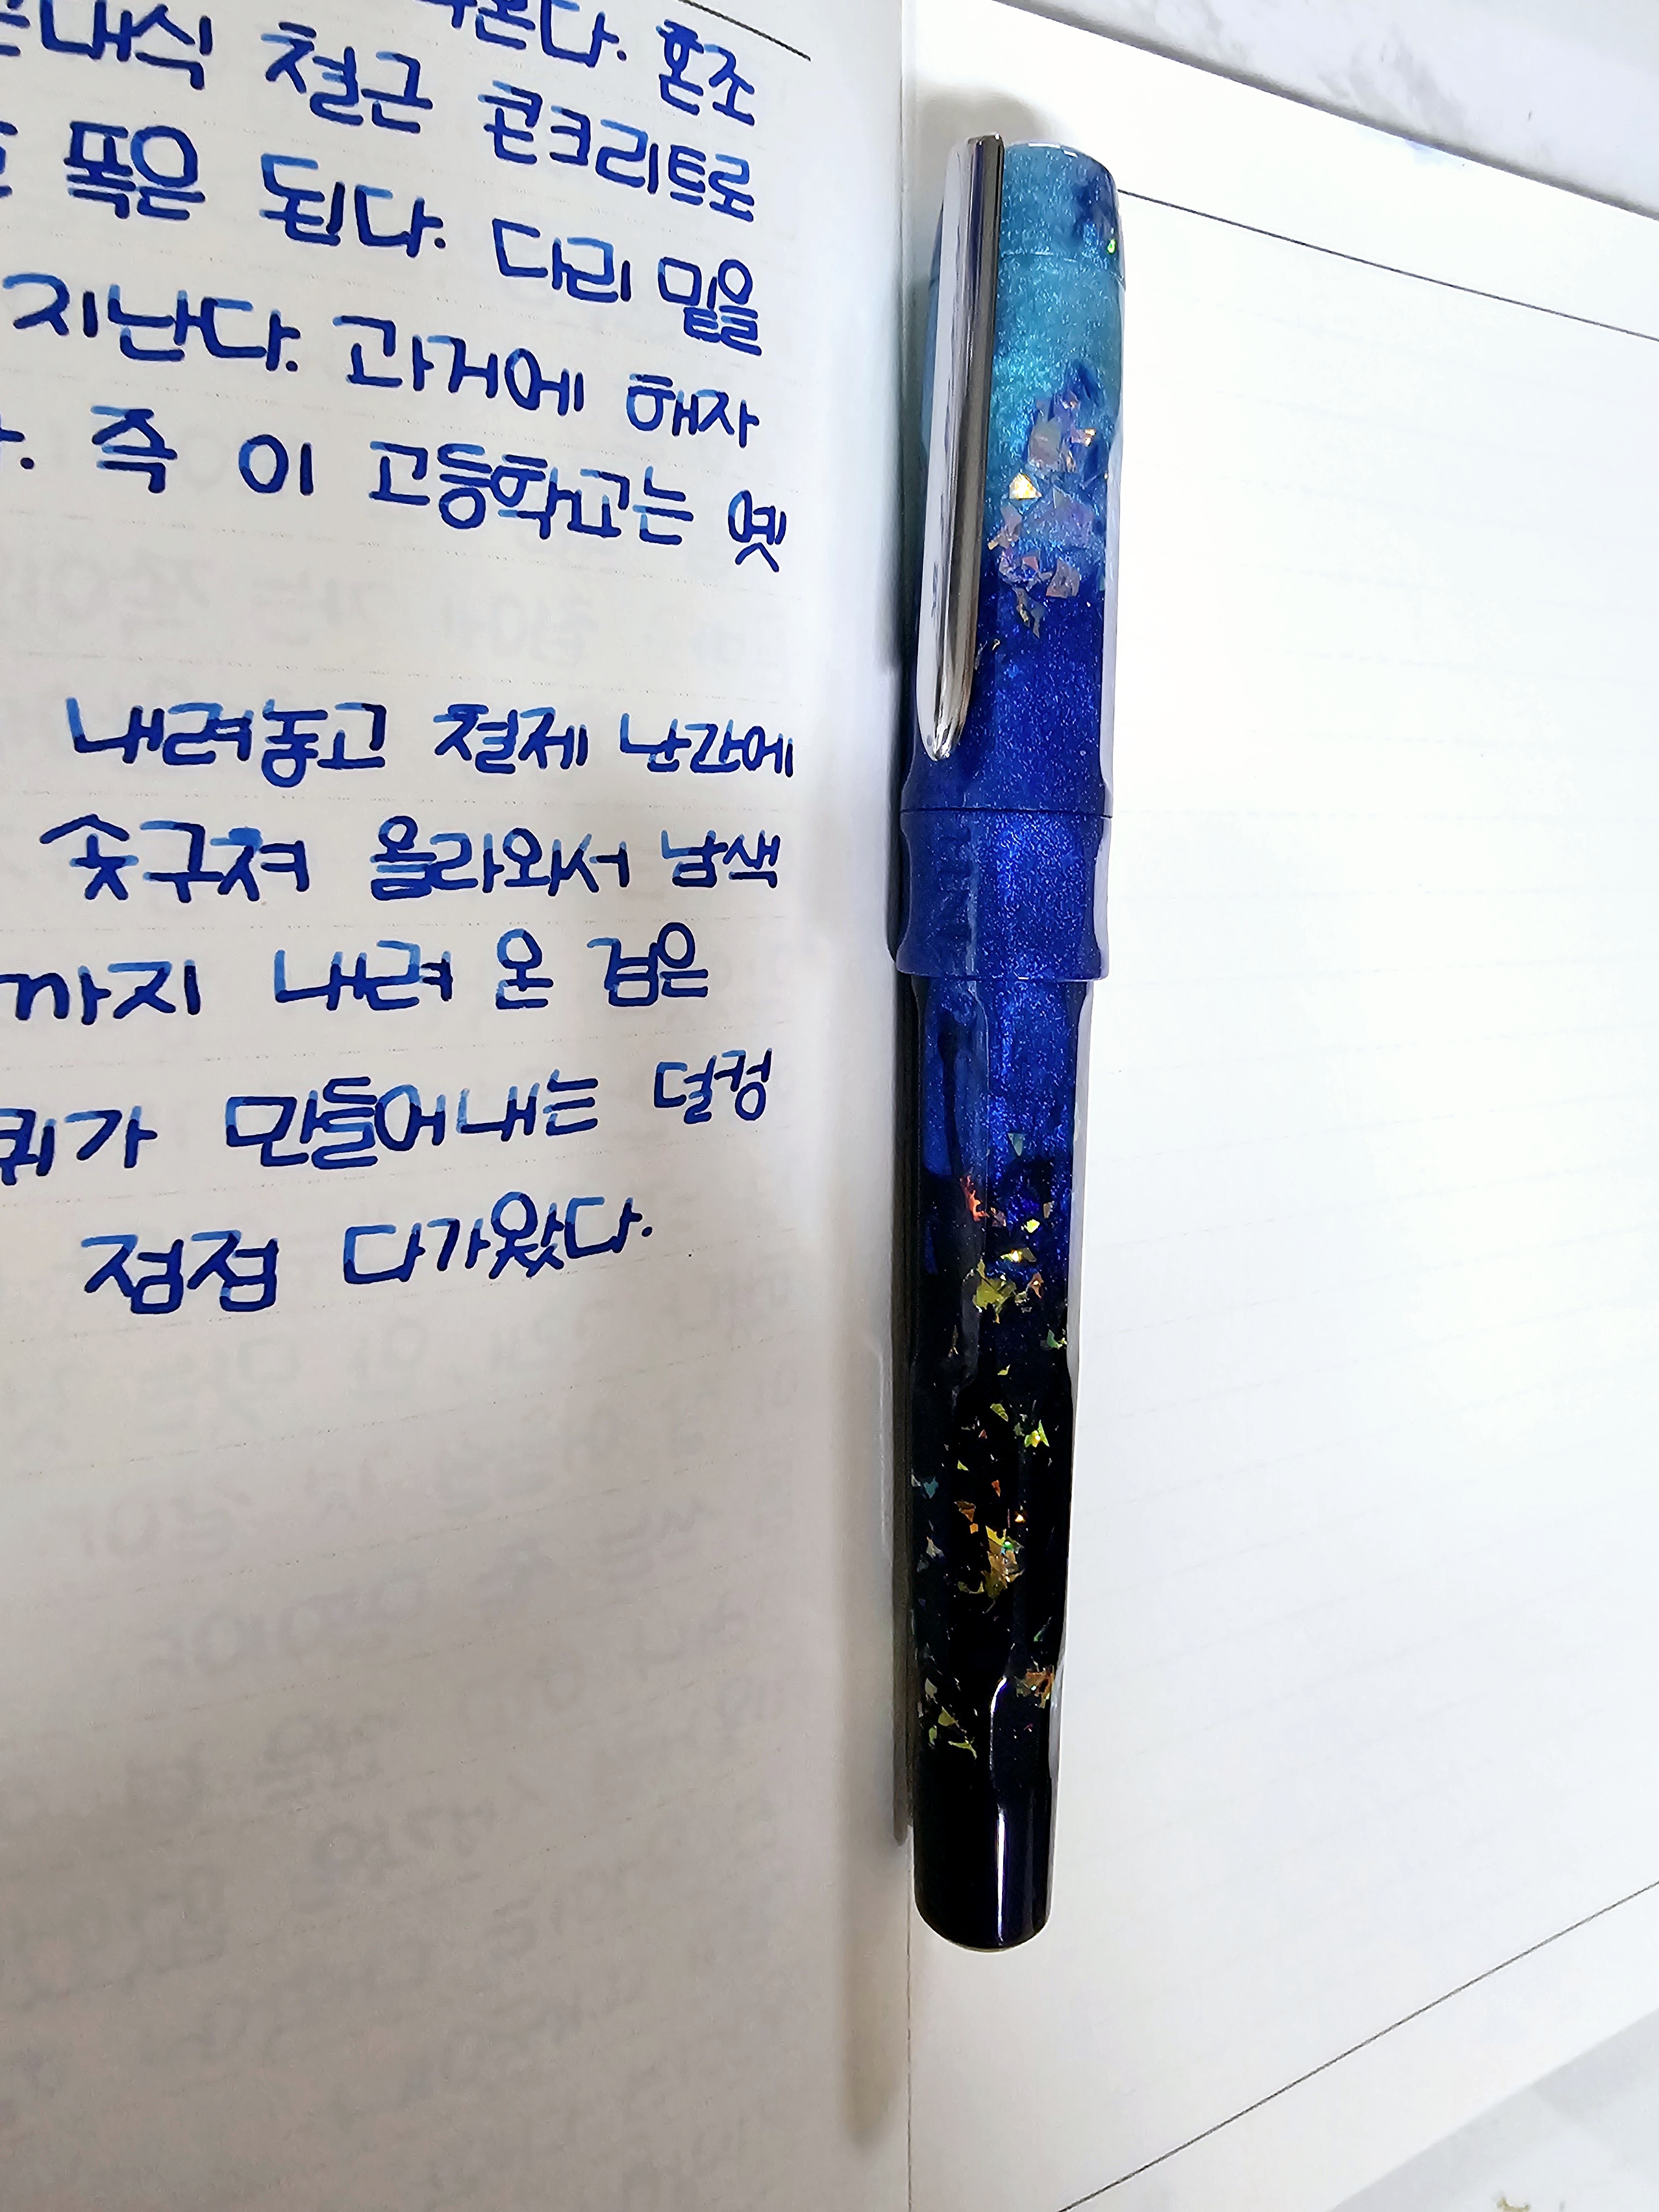 온다. 혼조
대식 철근 콘크리트로
폭은 된다. 다리 밑을
지난다. 과거에 해자
. 즉 이 고등학교는 옛
내려놓고 철제 난간에
솟구쳐 올라와서 남색
까지 내려 온 검은
퀴가 만들어내는 덜컹
점점 다가왔다.